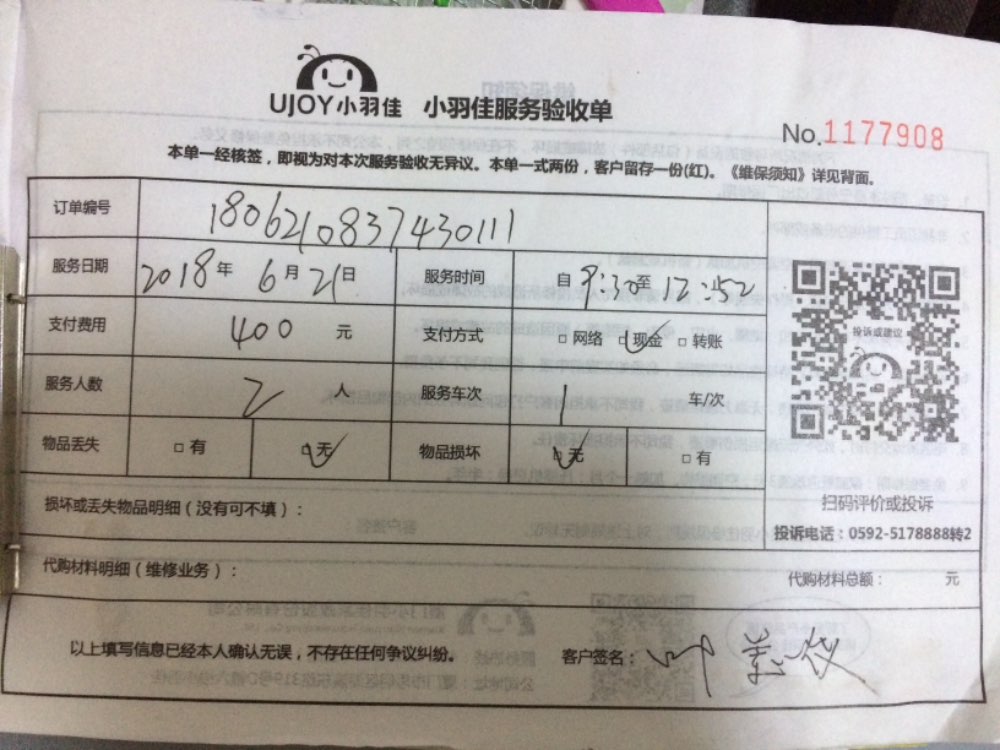 UJOY小羽佳 小羽佳服务验收单
No.1177908
本单一经核签，即视为对本次服务验收无异议。本单一式两份，客户留存一份(红)。《维保须知》详见背面。
订单编号 180621083743011
服务日期 2018年 6月21日 服务时间 自9:30至12:52
支付费用 400 元 支付方式 □网络 □现金 □转账
投诉或建议
服务人数 2 人 服务车次 1 车/次
物品丢失 □有 □无 物品损坏 □无 □有
扫码评价或投诉
损坏或丢失物品明细（没有可不填）：
投诉电话：0592-5178888转2
代购材料明细（维修业务）： 代购材料总额： 元
以上填写信息已经本人确认无误，不存在任何争议纠纷。 客户签名：